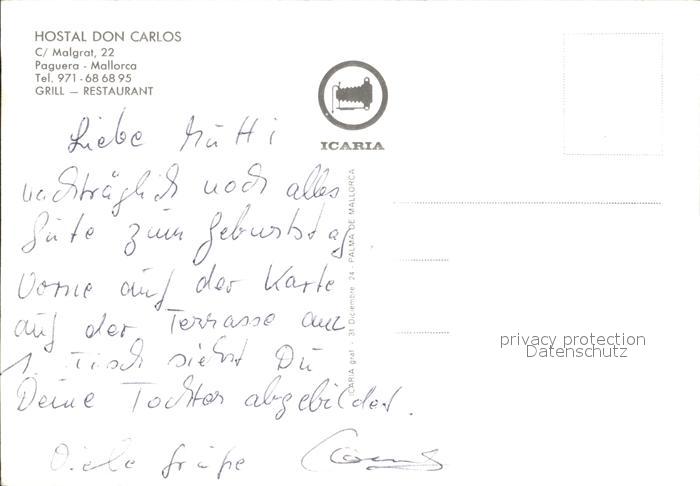 HOSTAL DON CARLOS
C/ Malgrat, 22
Paguera - Mallorca
Tel. 971 - 68 68 95
GRILL — RESTAURANT
ICARIA
Liebe Mutti
nachträglich noch alles
Gute zum Geburtstag.
Vorne auf der Karte
auf der Terrasse am
1. Tisch siehst Du
Deine Tochter abgebildet.
Viele Grüße
ICARIA graf - 31 Diciembre 24 - PALMA DE MALLORCA
privacy protection
Datenschutz